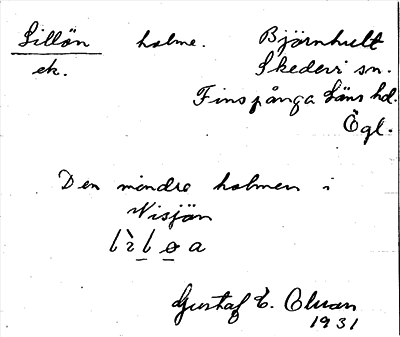 Lillön holme. Björnhult
ek. Skedevi sn.
Finspånga Läns hd.
Ögl.
Den mindre holmen i
Nisjön
Gustaf E.
1931